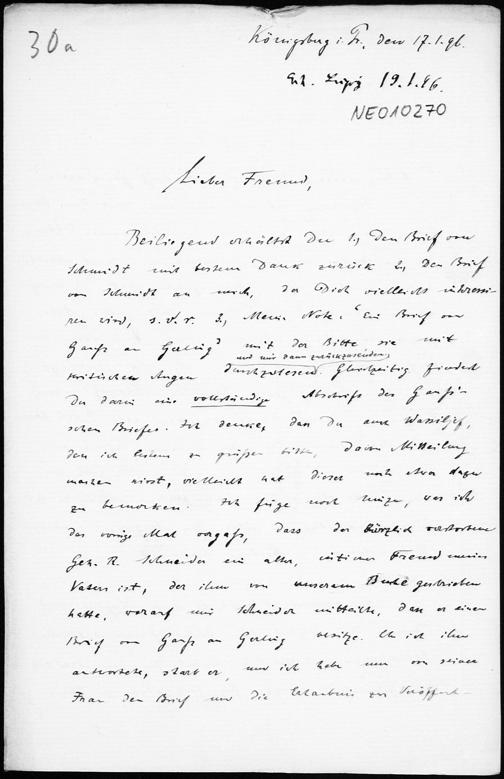 30a
Königsberg i. Pr., den 17.1.96.
Erh. Leipzig 19.1.96.
NE010270
Lieber Freund,
Beiliegend erhältst Du 1, den Brief von
Schmidt mit bestem Dank zurück 2, den Brief
von Schmidt an mich, der Dich vielleicht interessi-
ren wird, s.v.r. 3, Meine Note: "Ein Brief von
Gauß an Gerling" mit der Bitte sie mit
und mir dann zurückzusenden,
kritischen Augen durchzulesen. Gleichzeitig findest
Du darin eine vollständige Abschrift des Gauß'-
schen Briefes. Ich denke, dass Du auch Wassiljef,
den ich bestens zu grüßen bitte, davon Mitteilung
machen wirst, vielleicht hat dieser noch etwas dazu
zu bemerken. Ich füge noch hinzu, was ich
das vorige Mal vergaß, dass der kürzlich verstorbene
Geh. R. Schneider ein alter, intimer Freund meines
Vaters ist, der ihm von unserem Buche geschrieben
hatte, worauf mir Schneider mitteilte, dass er einen
Brief von Gauß an Gerling besitze. Eh ich ihm
antwortete, starb er, und ich habe nun von seiner
Frau den Brief und die Erlaubnis zur